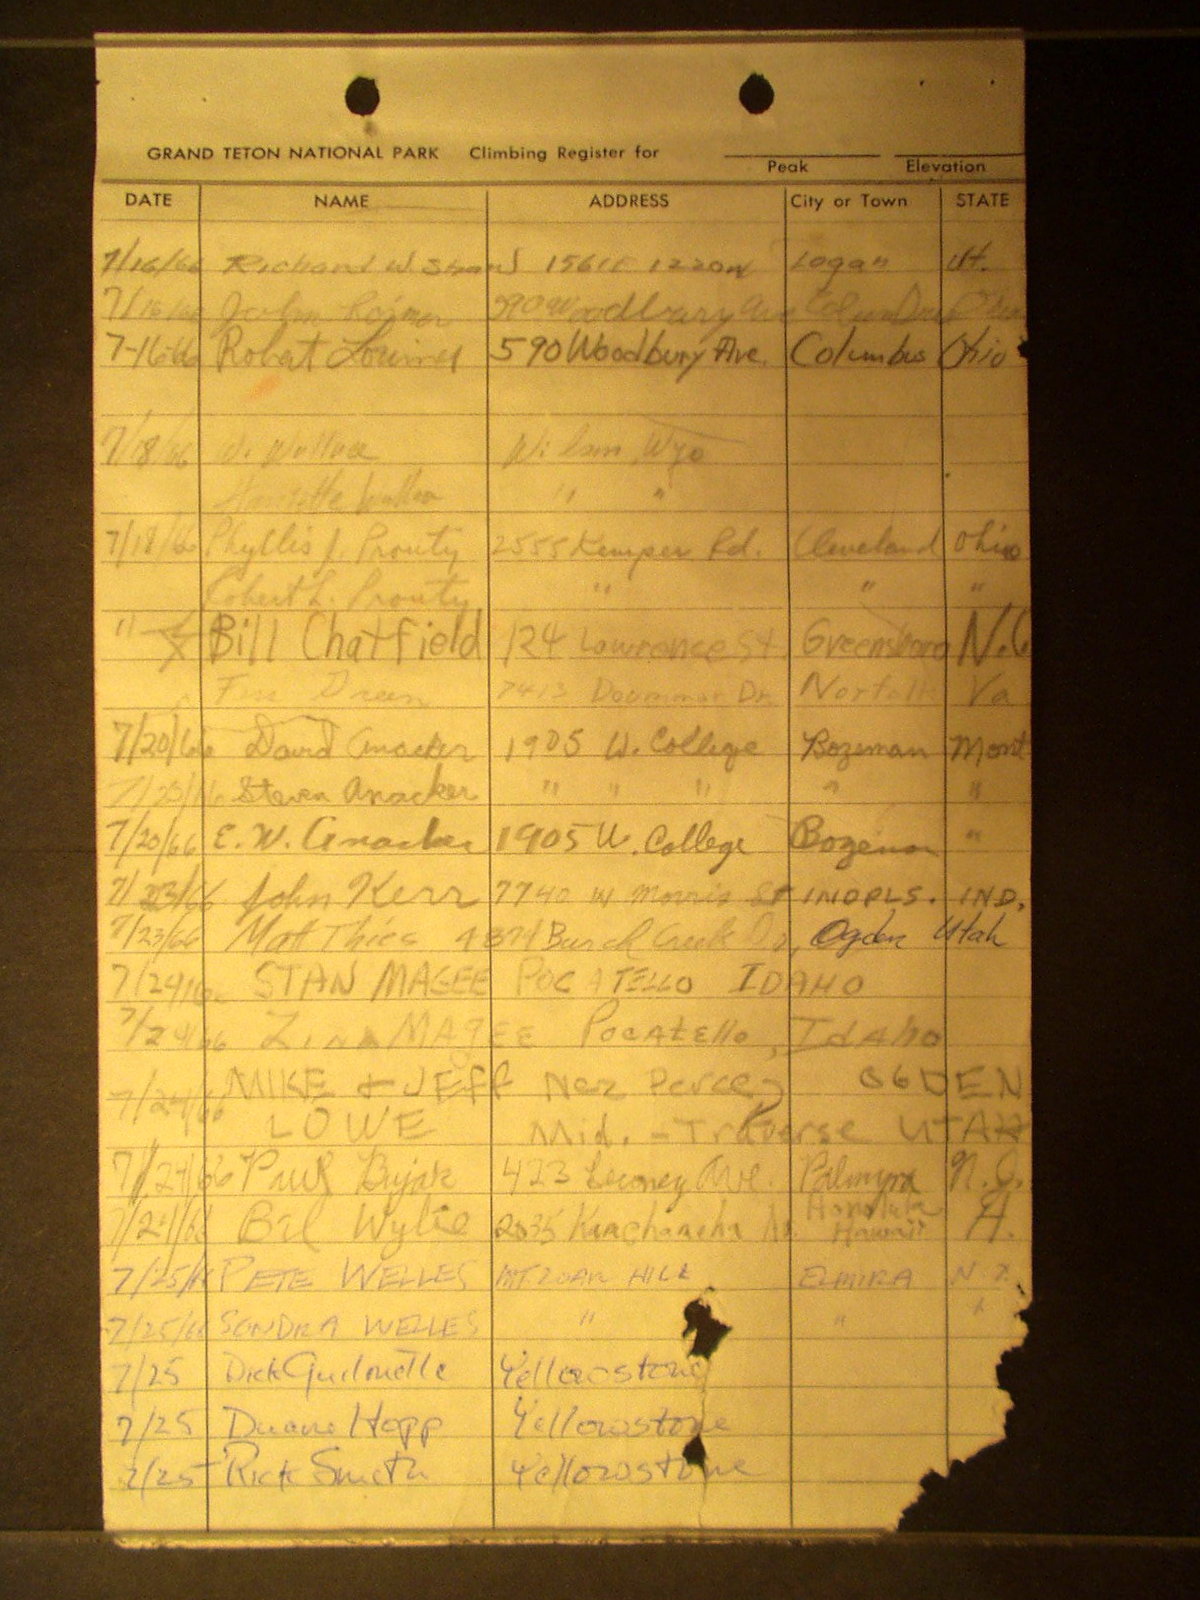 GRAND TETON NATIONAL PARK Climbing Register for
Peak Elevation
DATE NAME ADDRESS City or Town STATE
7/16/66 Richard W. 1220N Logan Ut.
7/16/66 John 590 Woodbury Ave
7-16-66 Robert 590 Woodbury Ave. Columbus Ohio
7/18/66 J. Wallace Wilson Wyo
" "
7/18/66 Phyllis J. Prouty 2555 Kemper Rd. Cleveland Ohio
Robert L. Prouty " " "
" Bill Chatfield 124 Lawrence St Greensboro N.C
7413 Dr. Norfolk Va
7/20/66 David Anacker 1905 W. College Bozeman Mont
Steven Anacker " " " " "
7/20/66 E. W. Anacker 1905 W. College Bozeman "
7/23/66 John Kerr 7740 W Morris St INDPLS. IND.
7/23/66 Mat Thies 4874 Burch Creek Dr, Ogden Utah
7/24/66 STAN MAGEE POCATELLO IDAHO
7/24/66 MAGEE POCATEllo, IdAho
7/24/66 MIKE + JEFF Nez Perce, OGDEN
LOWE Mid. - Traverse UTAH
7/24/66 Paul Bujak 423 Ave. Palmyra N.J.
7/24/66 Bil Wylie Honolulu Hawaii H.
7/25/66 PETE WELLES MT. ZOAR HILL ELMIRA N.Y.
7/25/66 SONDRA WELLES " " "
7/25 Dick Yellowstone
7/25 Duane Hopp Yellowstone
7/25 Rick Smith Yellowstone